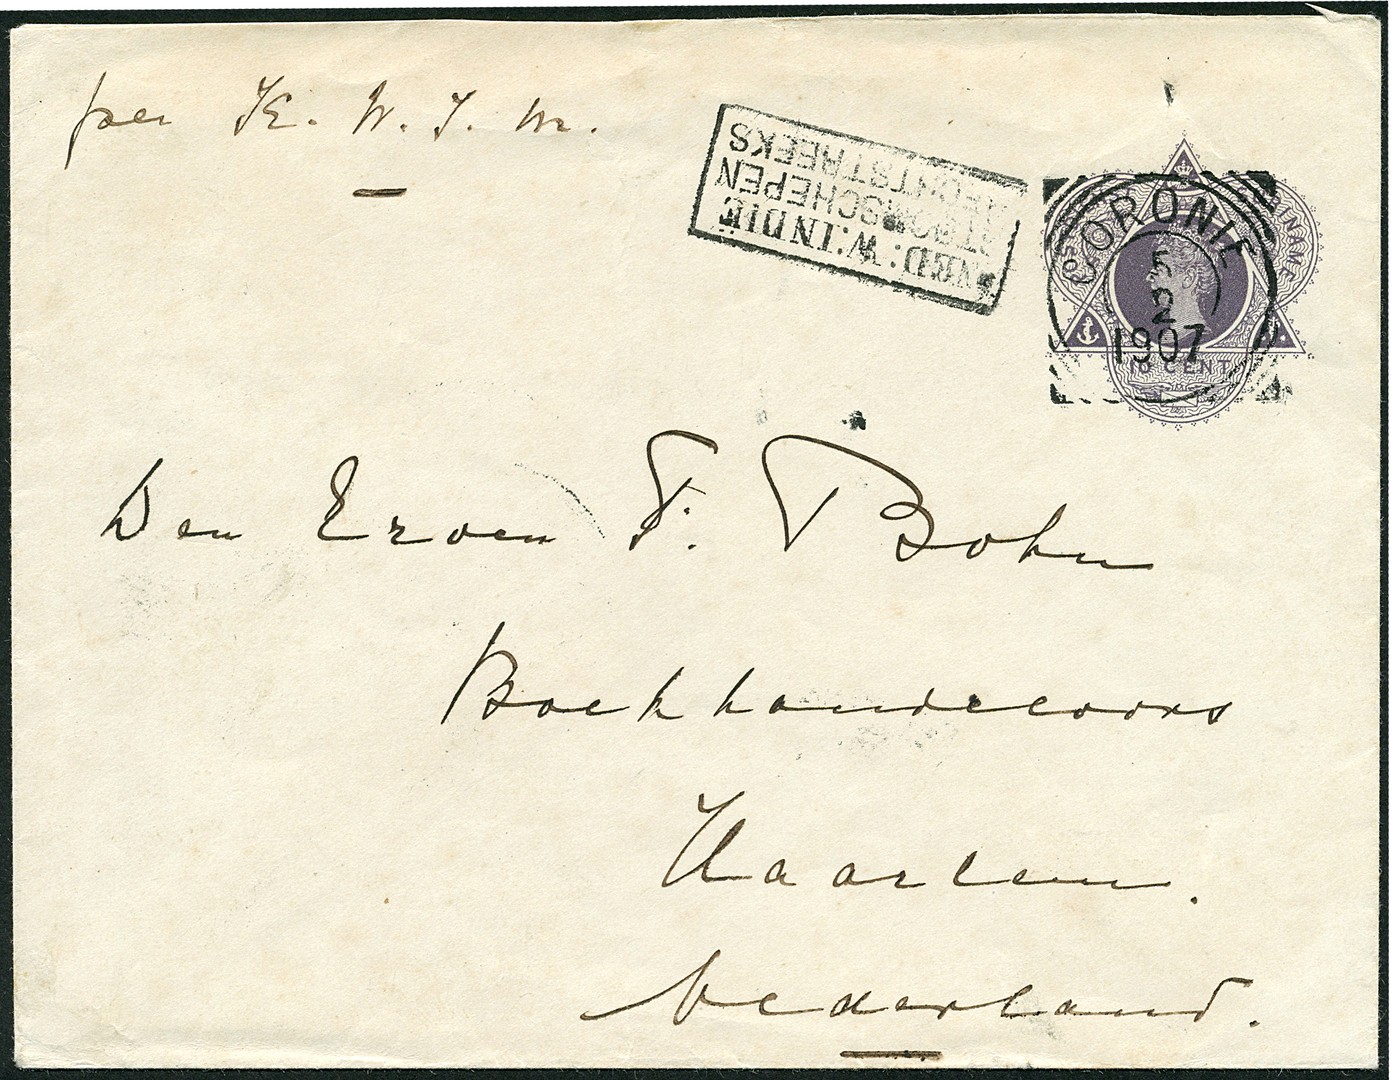 per K. W. I. M.
NED: W: INDIË
STOOMSCHEPEN
RECHTSTREEKS
SURINAME
CORONIE
5
2
1907
10 CENT
Den Erven F. Bohn
Boekhandelaars
Haarlem.
Nederland.